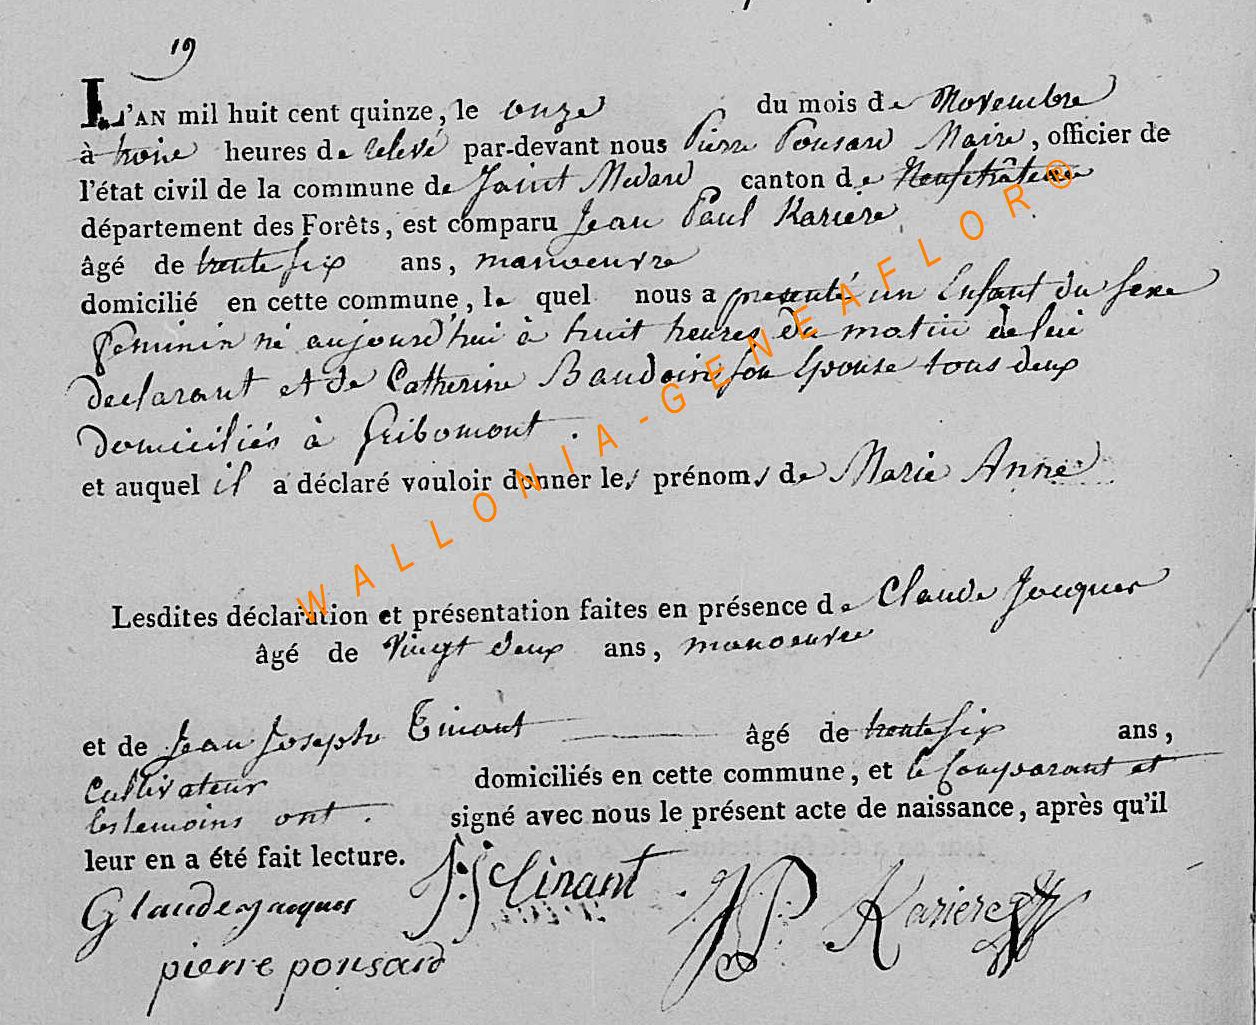 19
L'AN mil huit cent quinze, le onze du mois de Novembre
à trois heures de relevé par-devant nous Pierre Ponsard Maire, officier de
l'état civil de la commune de Saint Medard canton de Neufchâteau
département des Forêts, est comparu Jean Paul Kariere
âgé de trente six ans, manoeuvre
domicilié en cette commune, le quel nous a presenté un Enfant du sexe
feminin né aujourd'hui à huit heures du matin de lui
declarant et de Catherine Baudoin son Epouse tous deux
domiciliés à Gribomont.
et auquel il a déclaré vouloir donner les prénoms de Marie Anne
Lesdites déclaration et présentation faites en présence de Claude Jacques
âgé de vingt deux ans, manoeuvre
et de Jean Joseph Tinant âgé de trente six ans,
Cultivateur domiciliés en cette commune, et le Comparant et
les temoins ont. signé avec nous le présent acte de naissance, après qu'il
leur en a été fait lecture.
Glaude jacques J: J: tinant JP Kariere
pierre ponsard
WALLONIA-GENEAFLOR®